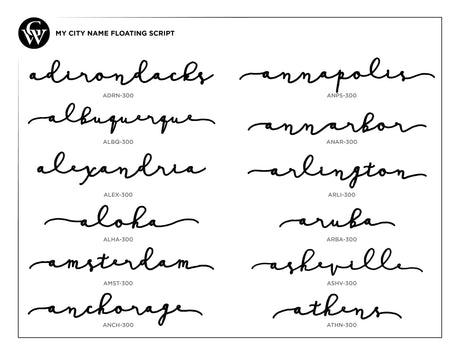 CW
MY CITY NAME FLOATING SCRIPT
adirondacks
ADRN-300
annapolis
ANPS-300
albuquerque
ALBQ-300
annarbor
ANAR-300
alexandria
ALEX-300
arlington
ARLI-300
aloha
ALHA-300
aruba
ARBA-300
amsterdam
AMST-300
asheville
ASHV-300
anchorage
ANCH-300
athens
ATHN-300